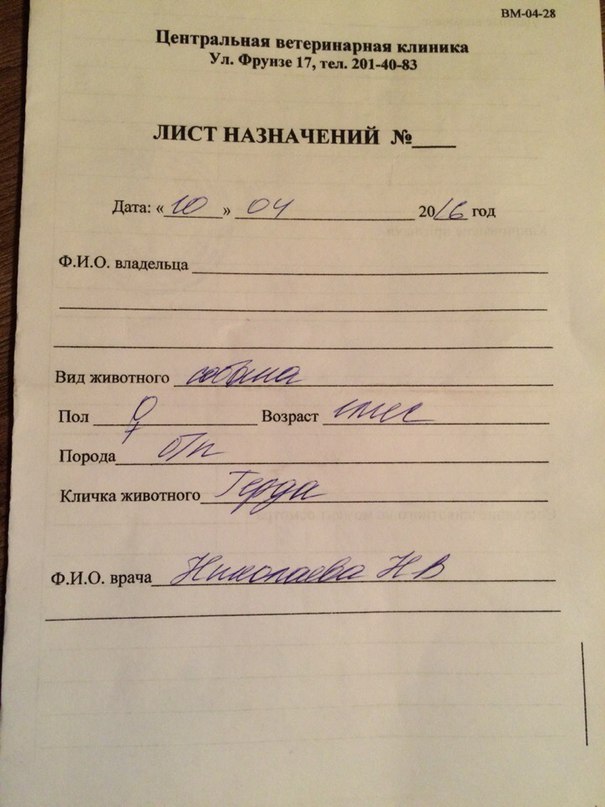 ВМ-04-28
Центральная ветеринарная клиника
Ул. Фрунзе 17, тел. 201-40-83
ЛИСТ НАЗНАЧЕНИЙ №____
Дата: «10» 04 2016 год
Ф.И.О. владельца
Вид животного собака
Пол ♀ Возраст
Порода
Кличка животного Герда
Ф.И.О. врача Николаева Н В